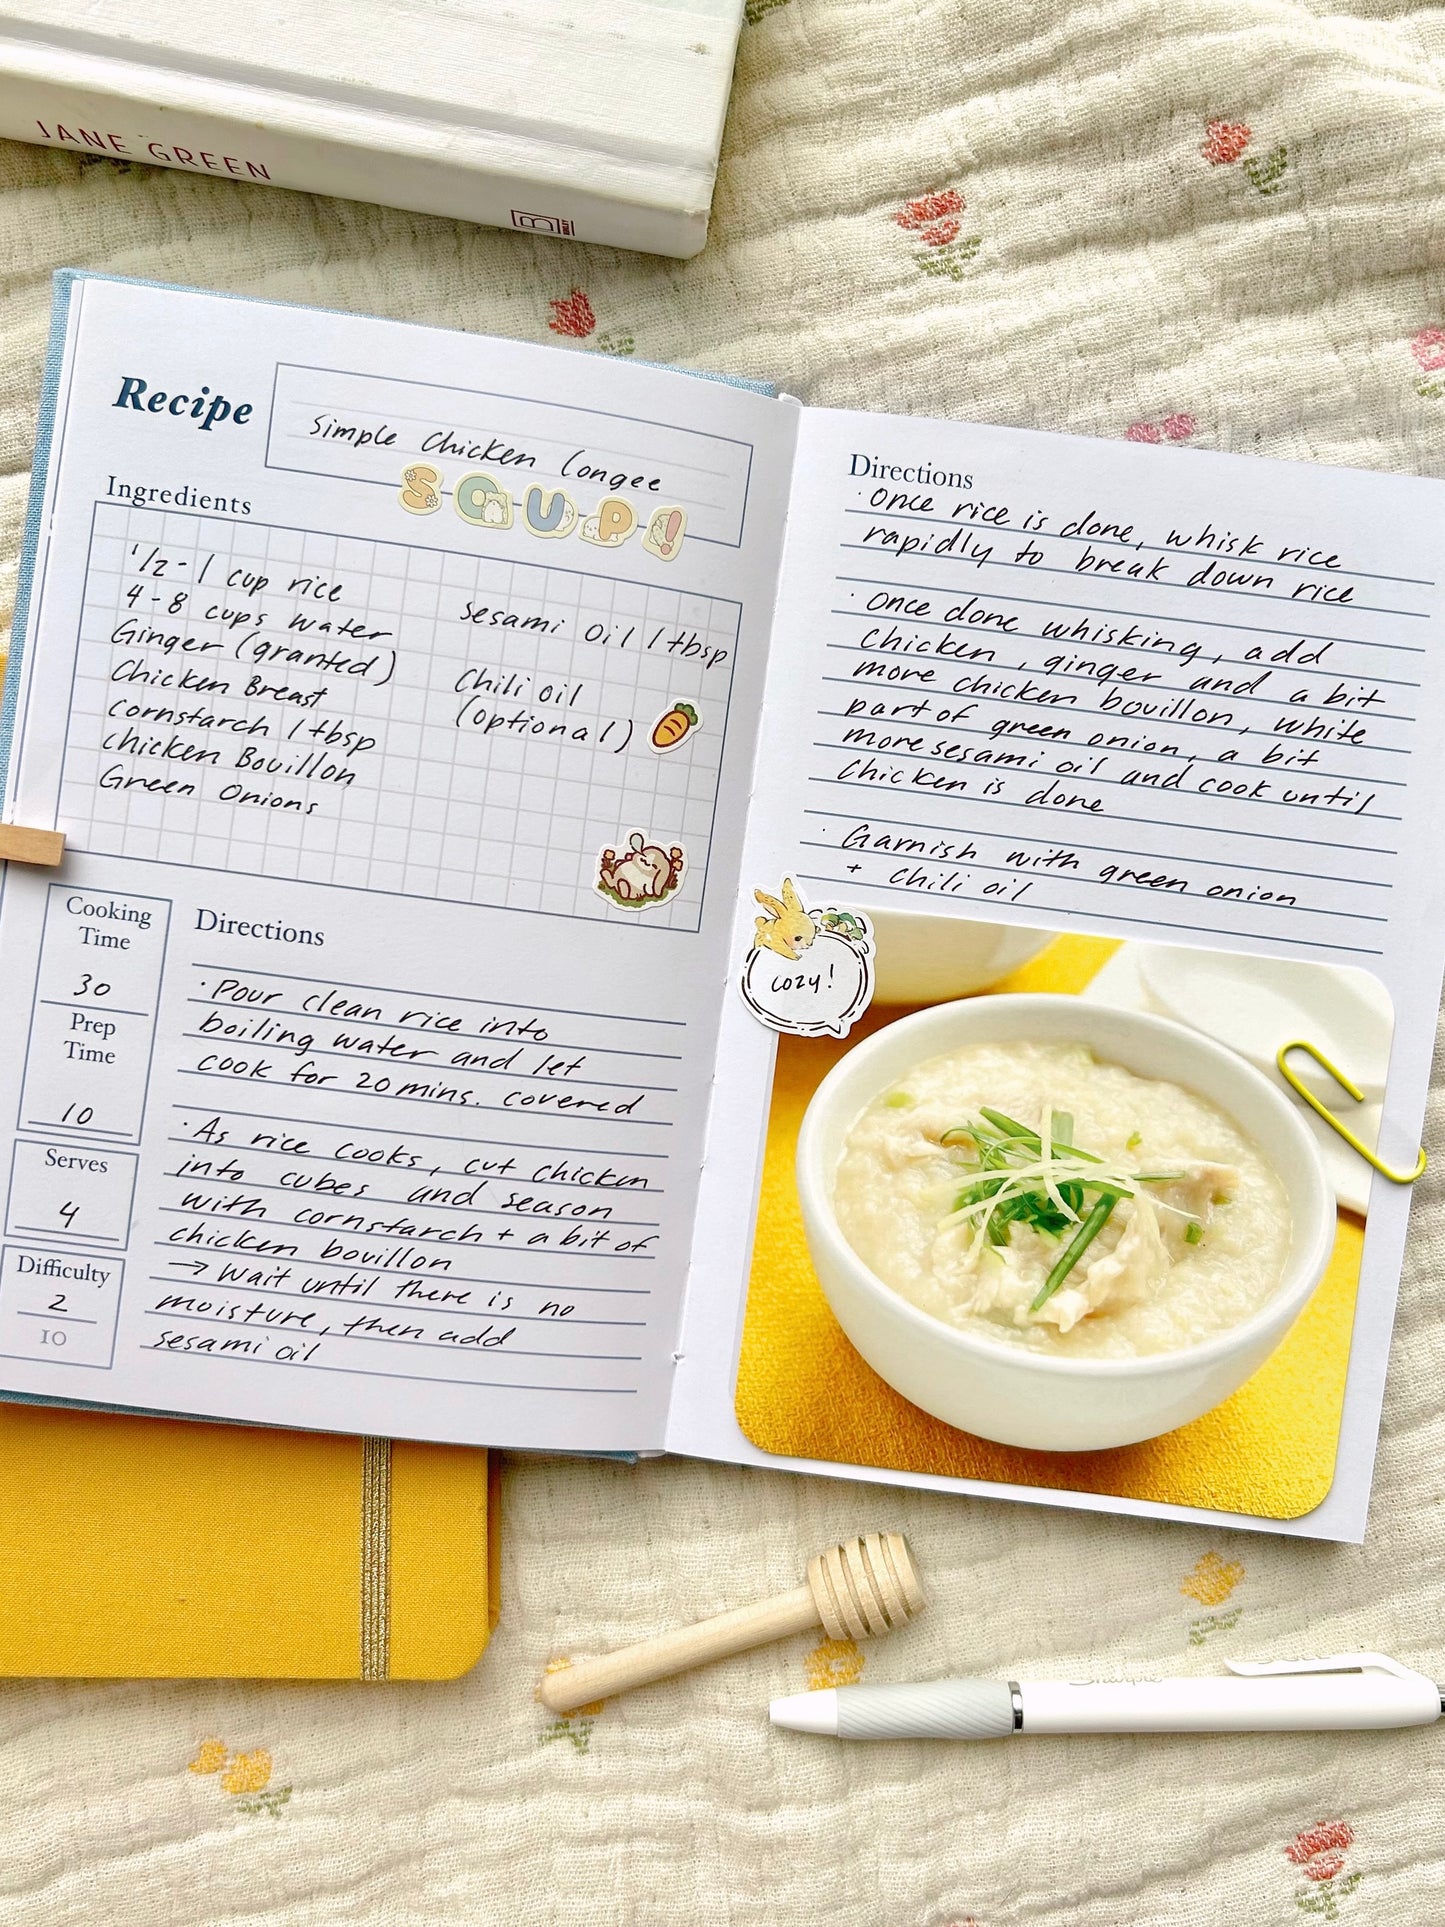 JANE GREEN
Recipe
Simple Chicken Congee
SOUP!
Ingredients
1/2 - 1 cup rice
4 - 8 cups water
Ginger (granted)
Chicken Breast
cornstarch 1 tbsp
chicken Bouillon
Green Onions
Sesami Oil 1 tbsp
Chili oil
(optional)
Cooking
Time
30
Prep
Time
10
Serves
4
Difficulty
2
10
Directions
· Pour clean rice into
boiling water and let
cook for 20 mins. covered
· As rice cooks, cut chicken
into cubes and season
with cornstarch + a bit of
chicken bouillon
→ Wait until there is no
moisture, then add
sesami oil
Directions
· Once rice is done, whisk rice
rapidly to break down rice
· Once done whisking, add
chicken, ginger and a bit
more chicken bouillon, white
part of green onion, a bit
more sesami oil and cook until
chicken is done
· Garnish with green onion
+ chili oil
cozy!
Sharpie